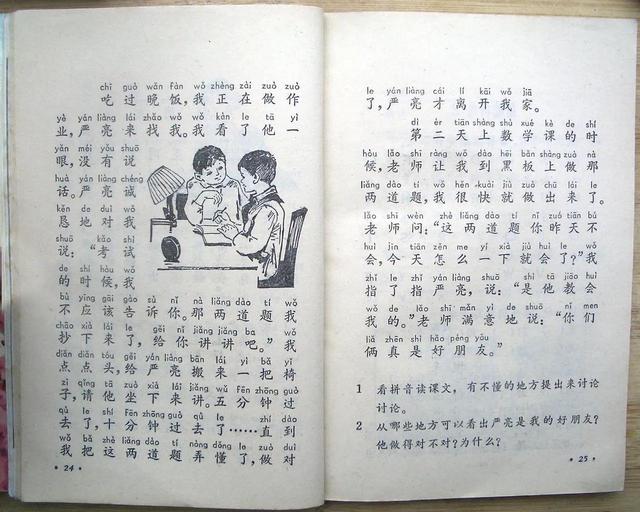 chī guò wǎn fàn wǒ zhèng zài zuò zuò
吃过晚饭，我正在做作
yè yán liàng lái zhǎo wǒ wǒ kàn le tā yì
业，严亮来找我。我看了他一
yǎn méi yǒu shuō
眼，没有说
huà yán liàng chéng
话。严亮诚
kěn de duì wǒ
恳地对我
shuō kǎo shì
说：“考试
de shí hòu wǒ
的时候，我
bù yīng gāi gào sù nǐ nà liǎng dào tí wǒ
不应该告诉你。那两道题我
chāo xià lái le gěi nǐ jiǎng jiǎng ba wǒ
抄下来了，给你讲讲吧。”我
diǎn diǎn tóu gěi yán liàng bān lái yì bǎ yǐ
点点头，给严亮搬来一把椅
zi qǐng tā zuò xià lái jiǎng wǔ fēn zhōng guò
子，请他坐下来讲。五分钟过
qù le shí fēn zhōng guò qù le zhí dào
去了，十分钟过去了……直到
wǒ bǎ zhè liǎng dào tí nòng dǒng le zuò duì
我把这两道题弄懂了，做对
·24·
le yán liàng cái lí kāi wǒ jiā
了，严亮才离开我家。
dì èr tiān shàng shù xué kè de shí
第二天上数学课的时
hòu lǎo shī ràng wǒ dào hēi bǎn shàng zuò nà
候，老师让我到黑板上做那
liǎng dào tí wǒ hěn kuài jiù zuò chū lái le
两道题，我很快就做出来了。
lǎo shī wèn zhè liǎng dào tí nǐ zuó tiān bú
老师问：“这两道题你昨天不
huì jīn tiān zěn me yí xià jiù huì le wǒ
会，今天怎么一下就会了？”我
zhǐ le zhǐ yán liàng shuō shì tā jiāo huì
指了指严亮，说：“是他教会
wǒ de lǎo shī mǎn yì de shuō nǐ men
我的。”老师满意地说：“你们
liǎ zhēn shì hǎo péng yǒu
俩真是好朋友。”
1 看拼音读课文，有不懂的地方提出来讨论
讨论。
2 从哪些地方可以看出严亮是我的好朋友？
他做得对不对？为什么？
·25·